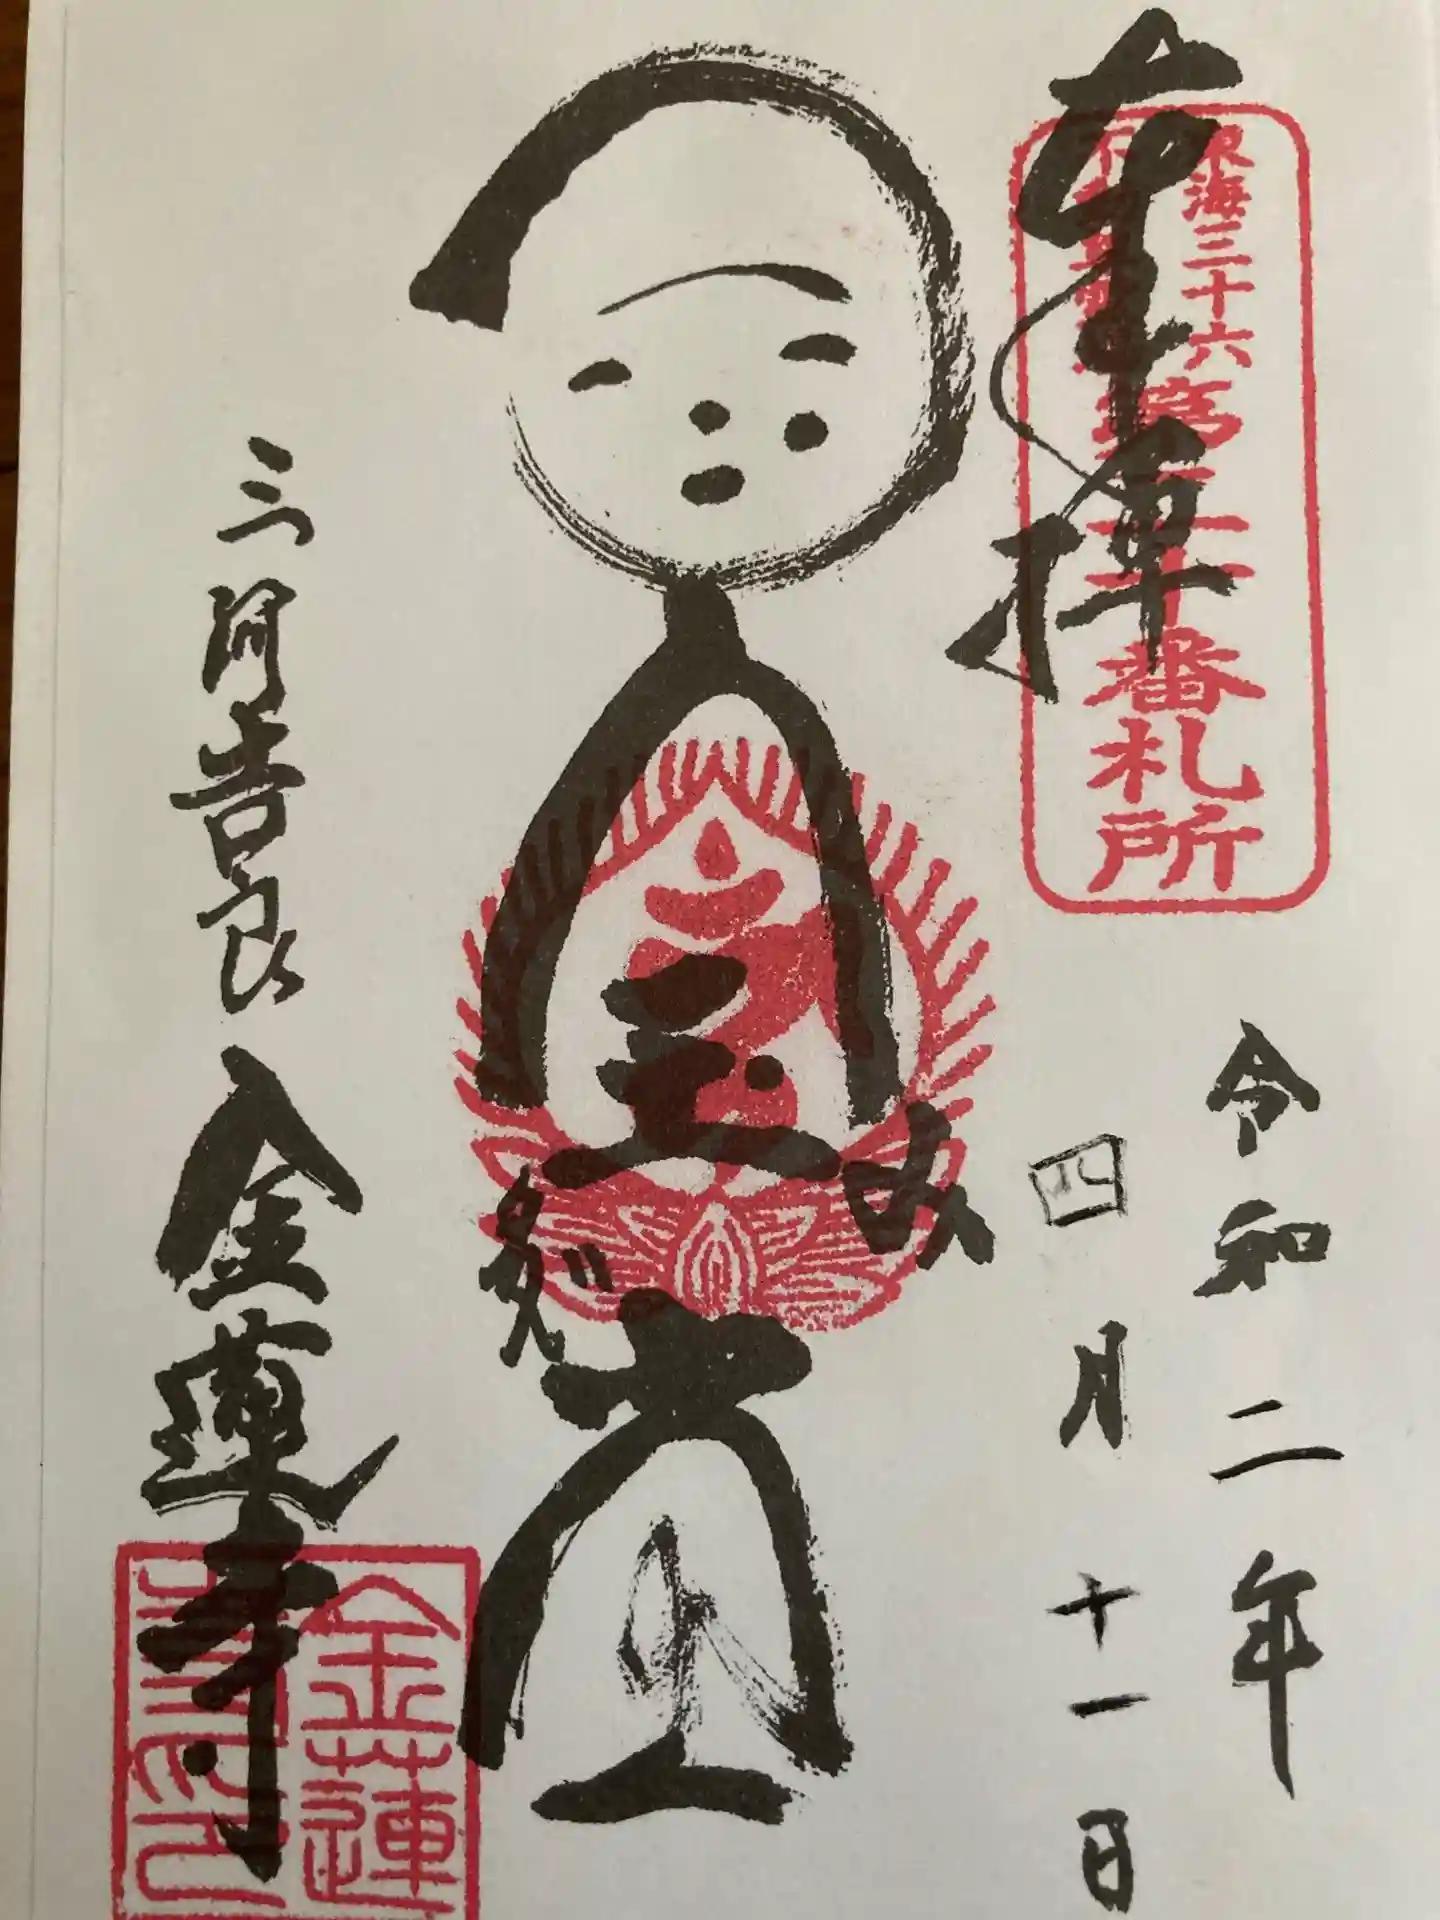 奉拝
東海三十六
不動尊霊場
第二十番札所
令和二年
四月十一日
み
だ
堂
三河吉良
金蓮寺
金蓮
寺印